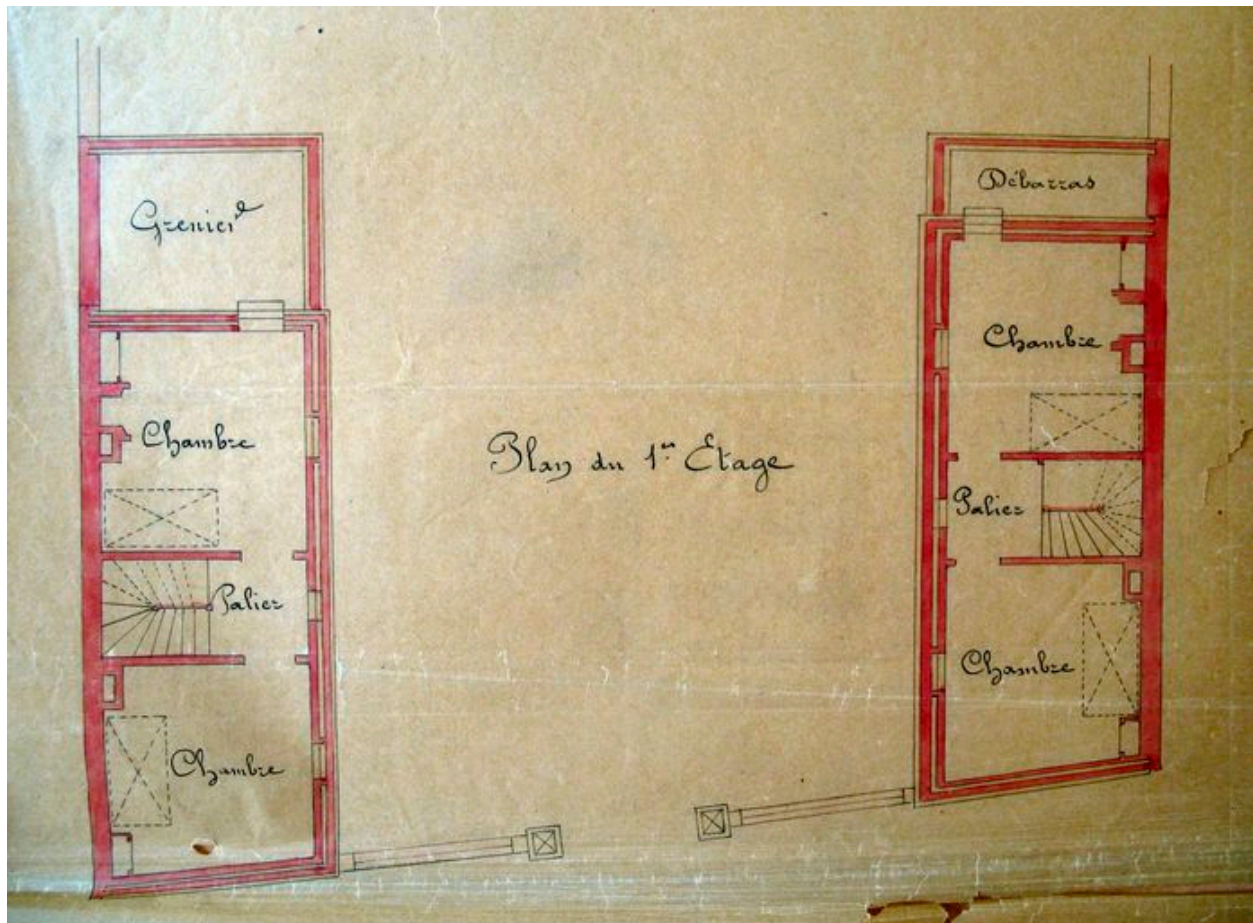 Grenier
Chambre
Palier
Chambre
Plan du 1er Etage
Débarras
Chambre
Palier
Chambre